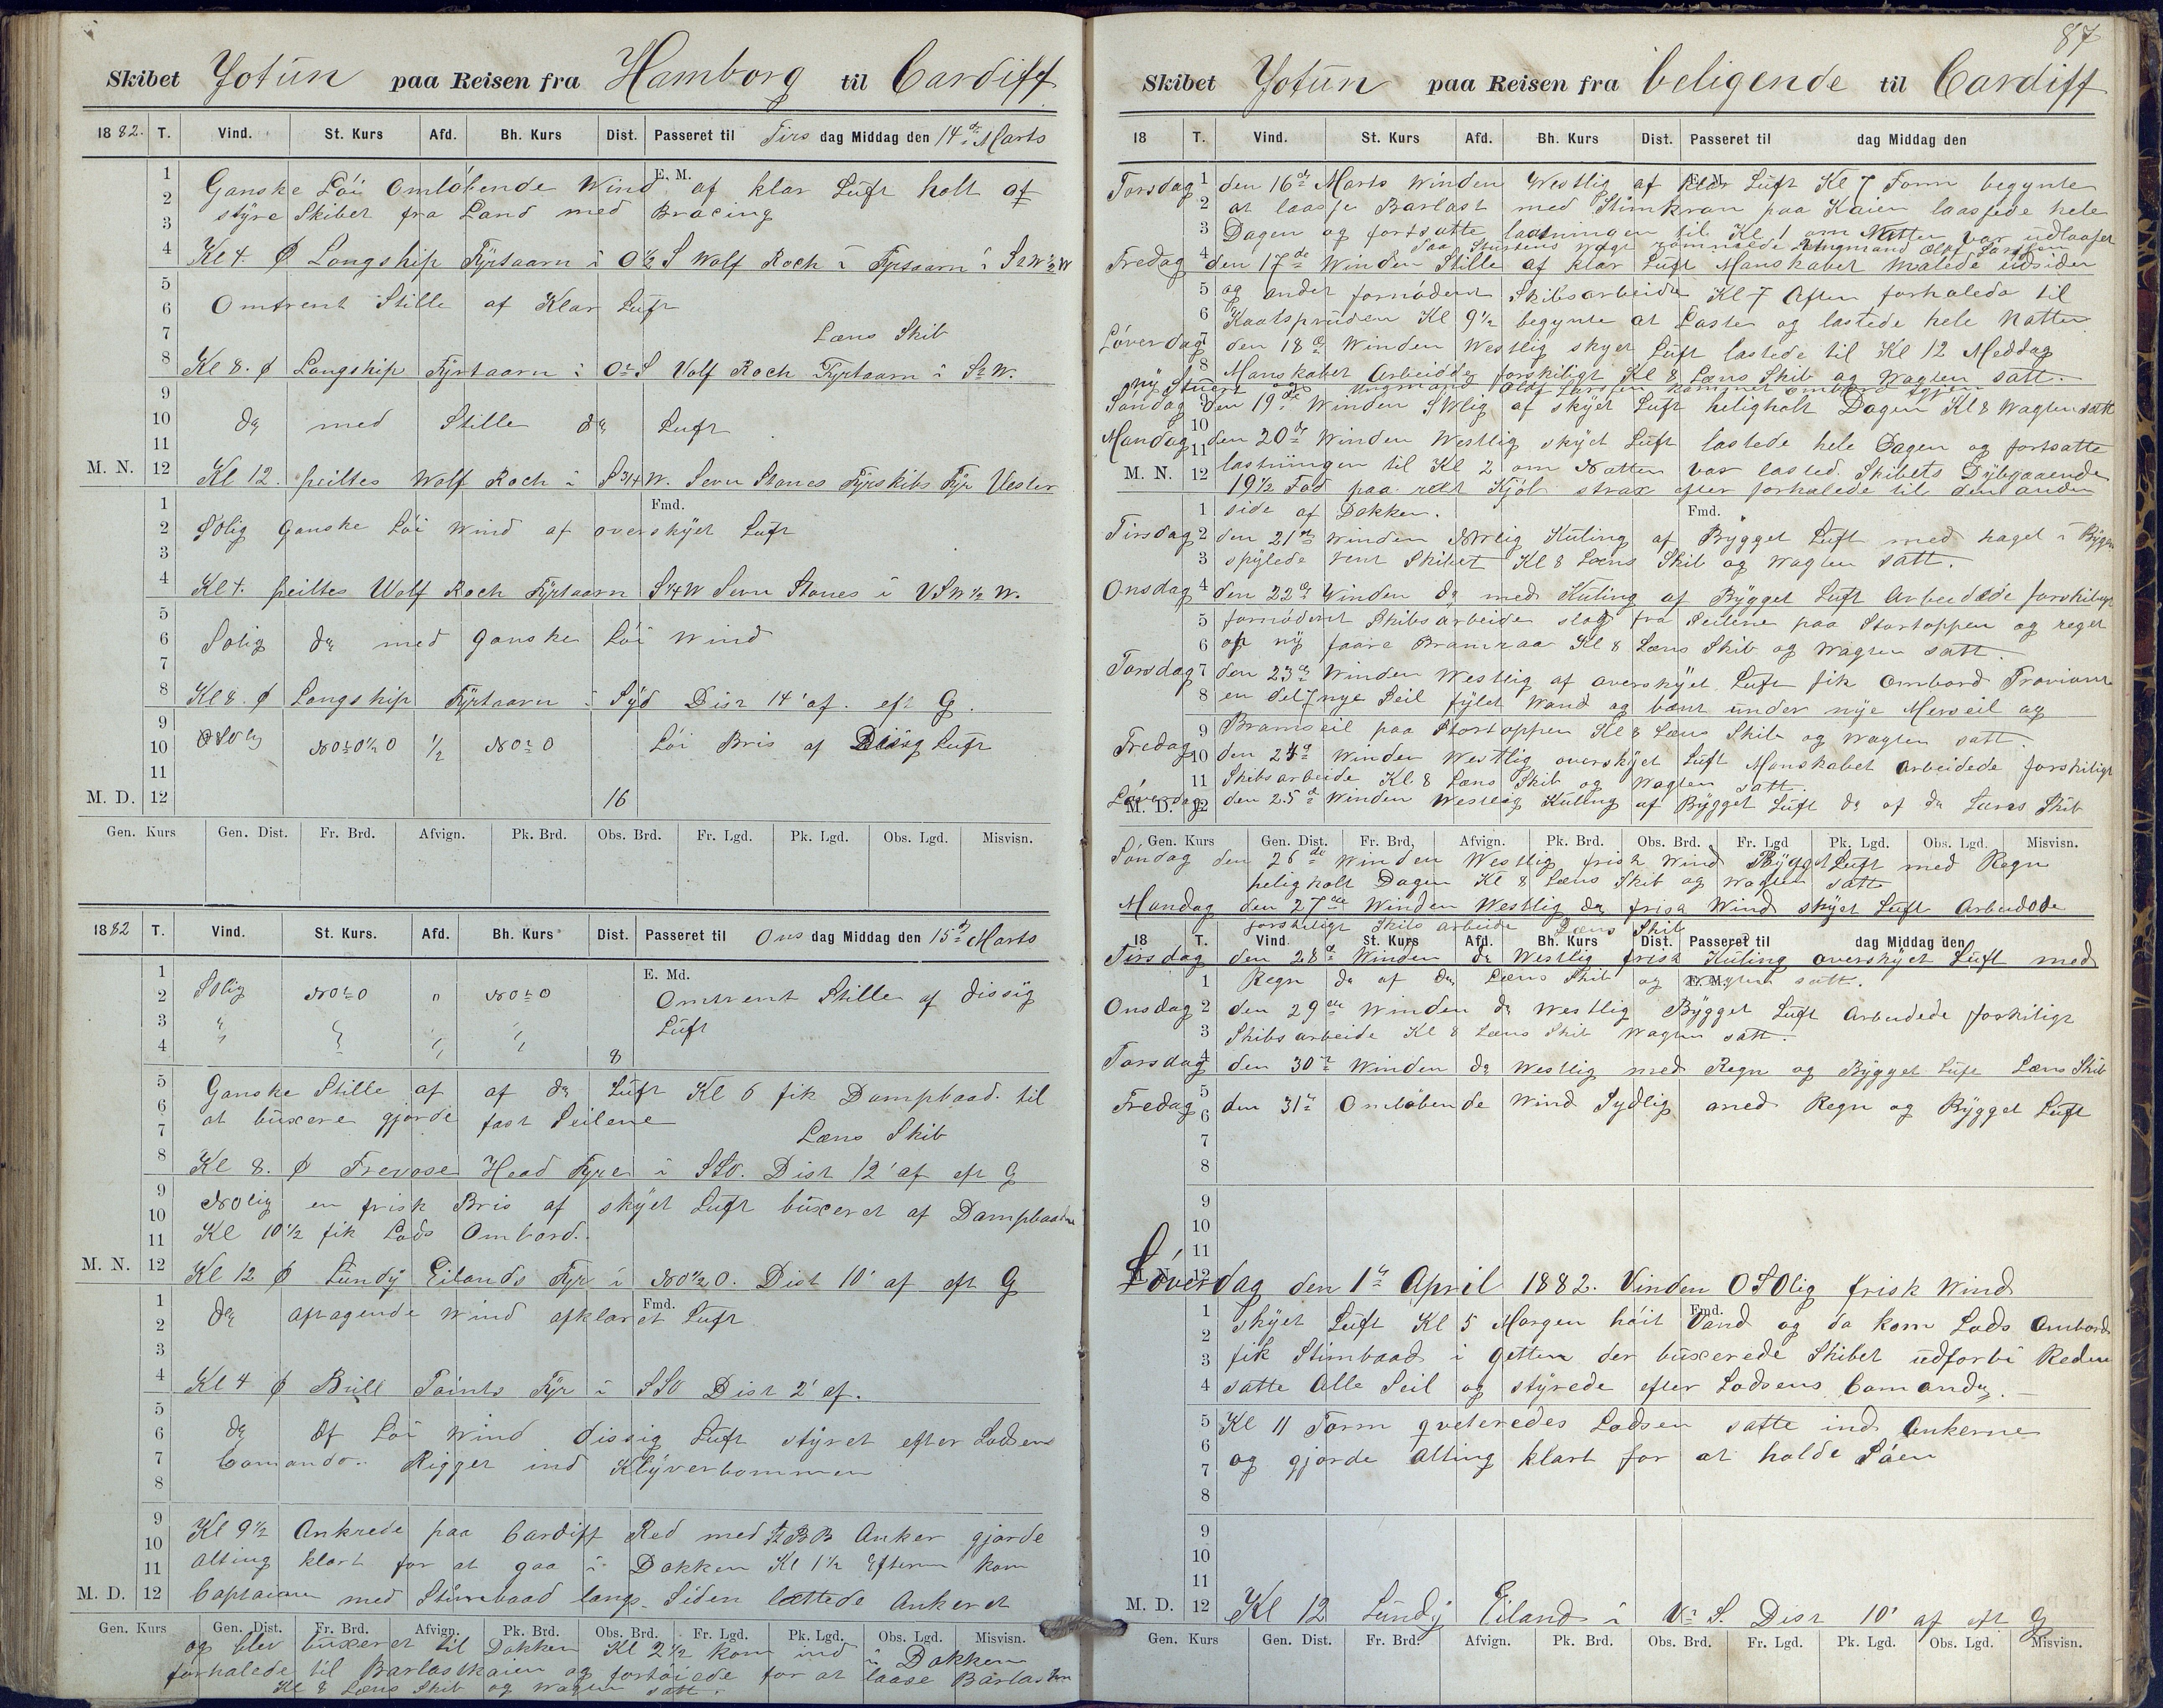 Skibet Jotun paa Reisen fra Hamborg til Cardiff
1882. T. Vind. St. Kurs Afd. Bh. Kurs Dist. Passeret til Tirs dag Middag den 14de Marts
E. M.
Ganske Löi Omlöbende Wind af klar Luft holt af
styre Skibet fra Land med Bracing
Kl 4. Ø Longship Fyrtaarn i O½S Wolf Roch i Fyrtaarn i
Omtrent Stille af Klar Luft
Læns Skib
Kl 8. Ø Longship Fyrtaarn i OtS Volf Roch Fyrtaarn i StW.
do med Stille do Luft
M. N. 12 Kl 12. peiltes Wolf Roch i S 3/4 W. Sevn Stones Fyrskibs Fyr Vester
Fmd.
SOlig ganske Löi Wind af overskyet Luft
Kl 4. peiltes Wolf Roch Fyrtaarn S¼W Sevn Stones i VSW½W.
Solig do med ganske Löi Wind
Kl 8. Ø Longship Fyrtaarn i Syd Dist 14' af. eft G.
OSOlig NOtO½O ½ NOtO Löi Bris af Disig Luft
M. D. 12 16
Gen. Kurs Gen. Dist. Fr. Brd. Afvign. Pk. Brd. Obs. Brd. Fr. Lgd. Pk. Lgd. Obs. Lgd. Misvisn.
1882 T. Vind. St. Kurs. Afd. Bh. Kurs Dist. Passeret til Ons dag Middag den 15de Marts
E. Md.
SOlig NOtO " NOtO Omtrent Stille af dissig
Luft
8
Ganske Stille af af do Luft Kl 6 fik Dampbaad til
at buxere gjorde fast Seilene
Læns Skib
Kl 8. Ø Trevose Head Fyre i SSO. Dist 12' af eft G
NOlig en frisk Bris af skyet Luft buxeret af Dampbaaden
Kl 10½ fik Lods Ombord.
M. N. 12 Kl 12 Ø Lundy Eilands Fyr i NO½O. Dist 10' af eft G
Fmd.
do aftagende Wind afklaret Luft
Kl 4 Ø Bull Points Fyr i SSO Dist 2' af.
do Af Löi Wind dissig Luft styret efter Lodsens
Comando. Rigget ind Klyverbommen
Kl 9½ Ankrede paa Cardiff Red med BB Anker gjorde
alting klart for at gaa i Dokken Kl 1½ Efterm kom
M. D. 12 Captainen med Stimbaad langs Siden lættede Ankeret
Gen. Kurs Gen. Dist. Fr. Brd. Afvign. Pk. Brd. Obs. Brd. Fr. Lgd. Pk. Lgd. Obs. Lgd. Misvisn.
og blev buxeret til Dokken Kl 2½ kom ind i Dokken
forhalede til Barlastkaien og fortöiede for at laase Barlasten
Kl 8 Læns Skib og Wagten satt.
87
Skibet Jotun paa Reisen fra beligende til Cardiff
18 T. Vind. St. Kurs Afd. Bh. Kurs Dist. Passeret til dag Middag den
E. M.
Torsdag den 16de Marts Winden Westlig af klar Luft Kl 7 Form begynte
at laasse Barlast med Stimkran paa Kaien laassede hele
Dagen og fortsatte laasningen til Kl 1 om Natten var udlaaset
Paa Stuertens Wagt römmede Ungmand Olaf Larsen
Fredag den 17de Winden Stille af klar Luft Manskabet Malede udsiden
og andet fornödent Skibsarbeide Kl 7 Aften forhalede til
Kaatspruden Kl 9½ begynte at Laste og lastede hele Natten
Löverdag den 18de Winden Westlig skyet Luft lastede til Kl 12 Meddag
Manskabet Arbeidde forskiligt Kl 8 Læns Skib og Wagten satt.
ny Stuert og Ungmand Olaf Larsen kommet ombord igjen
Söndag den 19de Winden SWlig af skyet Luft heligholt Dagen Kl 8 Wagten satt
Mandag den 20de Winden Westlig skyet Luft lastede hele Dagen og fortsatte
M. N. 12 lastningen til Kl 2 om Natten var lasted. Skibets Dybgaaende
19½ Fod paa ret Kjöl strax efter forhalede til den anden
Fmd.
side af Dokken.
Tirsdag den 21de Winden NWlig Kuling af Bygget Luft med hagel i Bygen
spylede rent Skibet Kl 8 Læns Skib og Wagten satt.
Onsdag den 22de Winden do med Kuling af Bygget Luft Arbeidede forskiligt
fornödent Skibsarbeide slog fra Seilene paa Stortoppen og reget
op ny faare Bramraa Kl 8 Læns Skib og Wagten satt.
Torsdag den 23de Winden Westlig af overskyet Luft fik Ombord Proviant
en del nye Seil fylet Wand og bant under nye Merseil og
Bramseil paa Stortoppen Kl 8 Læns Skib og Wagten satt.
Fredag den 24de Winden Westlig overskyet Luft Manskabet Arbeidede forskiligt
Skibsarbeide Kl. 8 Læns Skib og Wagten satt.
M. D. 12 Löverdag den 25de Winden Westlig Kuling af Bygget Luft do af do Læns Skib
Gen. Kurs Gen. Dist. Fr. Brd. Afvign. Pk. Brd. Obs. Brd. Fr. Lgd Pk. Lgd. Obs. Lgd. Misvisn.
Söndag den 26de Winden Westlig frisk Wind Bygget Luft med Regn
heligholt Dagen Kl 8 Læns Skib og Wagten satt
Mandag den 27de Winden Westlig do frisk Wind skyet Luft Arbeidede
forskiligt Skibs arbeide Læns Skib
18 T. Vind. St. Kurs Afd. Bh. Kurs Dist. Passeret til dag Middag den
Tirsdag den 28de Winden do Westlig frisk Kuling overskyet Luft med
E. M.
Regn do af do Læns Skib og Wagten satt.
Onsdag den 29de Winden do Westlig Bygget Luft Arbeidede forskiligt
Skibsarbeide Kl 8 Læns Skib Wagten satt.
Torsdag den 30te Winden do Westlig med Regn og Bygget Luft Læns Skib
Fredag den 31te Omlöbende Wind Sydlig med Regn og Bygget Luft
M. N. 12
Löverdag den 1ste April 1882. Vinden OSOlig frisk Wind
Fmd.
skyet Luft Kl 5 Morgen höit Vand og da kom Lods Ombord
fik Stimbaad i Getten der buxerede Skibet udforbi Reden
satte Alle Seil og styrede efter Lodsens Comando.
Kl 11 Form qveteredes Lodsen satte ind Ankerne
og gjorde alting klart for at holde Söen
M. D. 12 Kl 12 Lundy Eiland i VtS. Dist 10' af eft G
Gen. Kurs Gen. Dist. Fr. Brd. Afvign. Pk. Brd. Obs. Brd. Fr. Lgd. Pk. Lgd. Obs. Lgd. Misvisn.